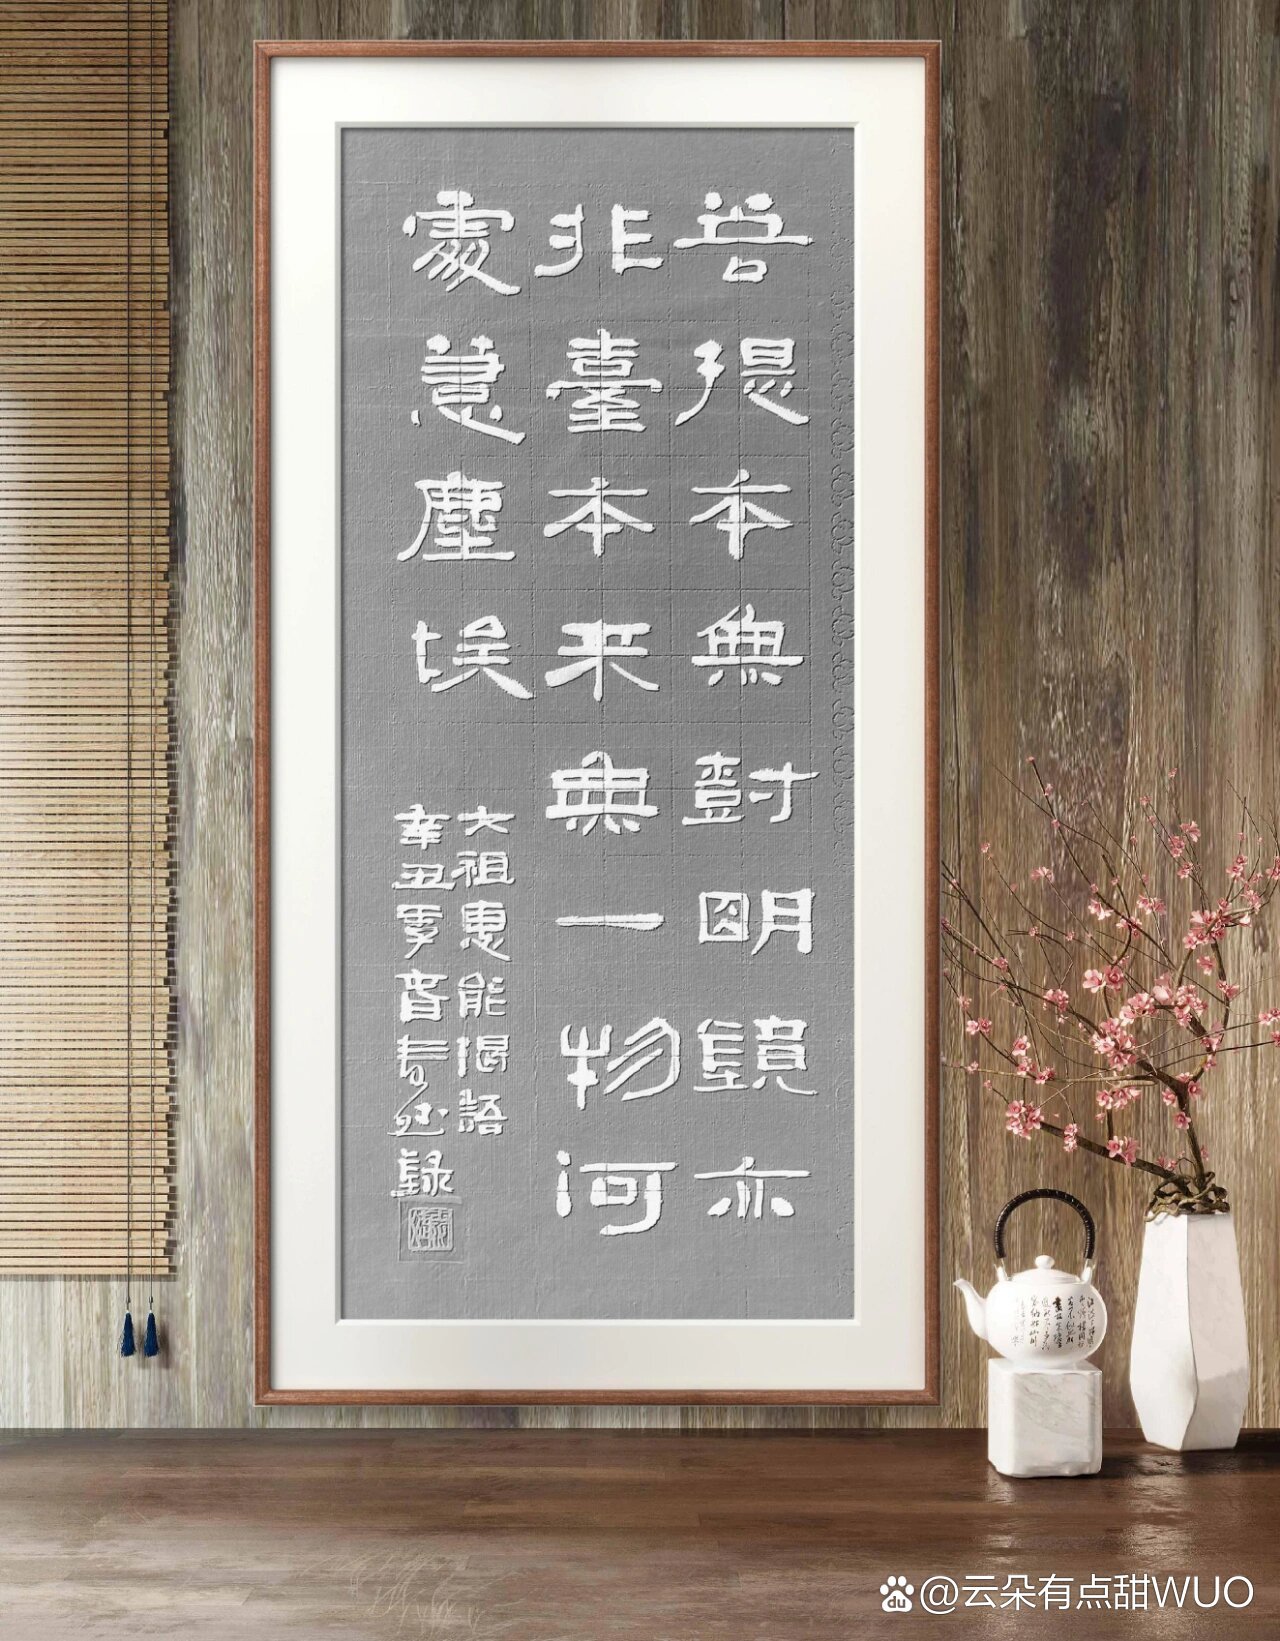 菩提本無尌明鏡亦
非臺本來無一物何
處惹塵埃
六祖惠能偈語
辛丑季春 錄
@云朵有点甜WUO